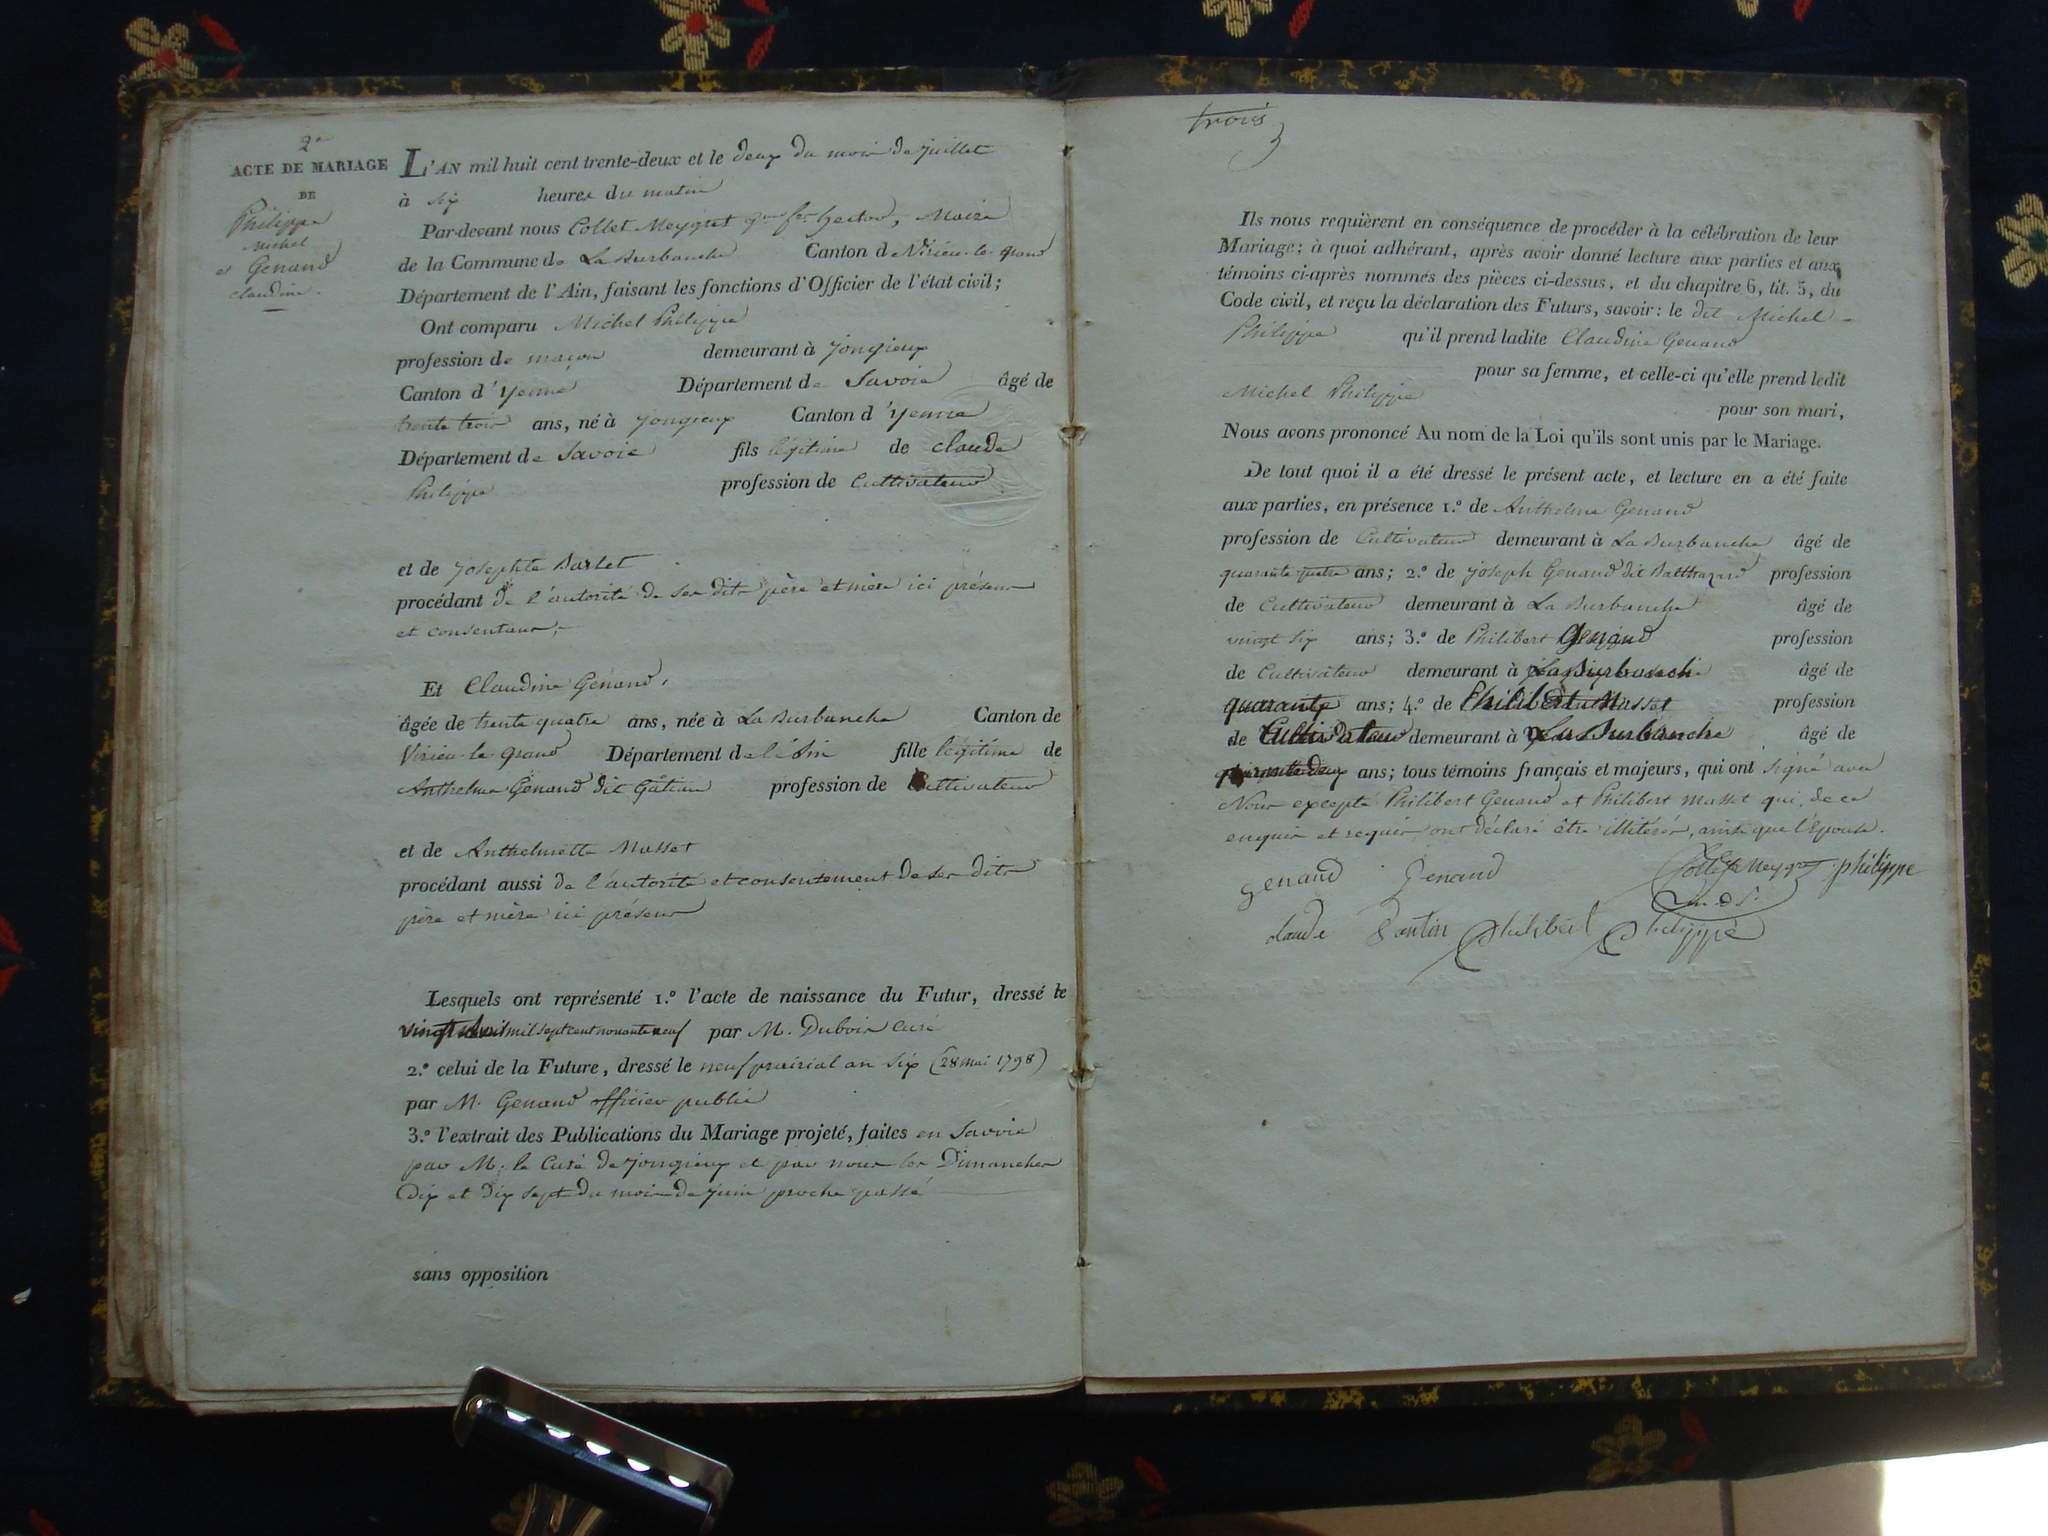 2e
ACTE DE MARIAGE
DE
Philippe
Michel
et Genand
Claudine.
L'AN mil huit cent trente-deux et le deux du mois de juillet
à six heures du matin
Par-devant nous Collet Meygret hector, Maire
de la Commune de La Burbanche Canton de Virieu-le-grand
Département de l'Ain, faisant les fonctions d'Officier de l'état civil;
Ont comparu Michel Philippe
profession de maçon demeurant à Jongieux
Canton d'Yenne Département de Savoie âgé de
trente trois ans, né à Jongieux Canton d'Yenne
Département de Savoie fils légitime de Claude
Philippe profession de Cultivateur
et de Josephte Barlet
procédant de l'autorité de ses dits père et mère ici présens
et consentans;
Et Claudine Genand,
âgée de trente quatre ans, née à La Burbanche Canton de
Virieu-le-grand Département de l'Ain fille légitime de
Anthelme Genand dit profession de Cultivateur
et de Anthelmette Masset
procédant aussi de l'autorité et consentement de ses dits
père et mère ici présens
Lesquels ont représenté 1.º l'acte de naissance du Futur, dressé le
vingt mil sept cent nonante neuf par M. Dubois curé
2.º celui de la Future, dressé le neuf prairial an six (28 mai 1798)
par M. Genand officier public
3.º l'extrait des Publications du Mariage projeté, faites en Savoie
par M. le Curé de Jongieux et par nous les Dimanches
Dix et Dix sept du mois de juin proche passé
sans opposition
trois
3
Ils nous requièrent en conséquence de procéder à la célébration de leur
Mariage; à quoi adhérant, après avoir donné lecture aux parties et aux
témoins ci-après nommés des pièces ci-dessus, et du chapitre 6, tit. 5, du
Code civil, et reçu la déclaration des Futurs, savoir: le dit Michel
Philippe qu'il prend ladite Claudine Genand
pour sa femme, et celle-ci qu'elle prend ledit
Michel Philippe pour son mari,
Nous avons prononcé Au nom de la Loi qu'ils sont unis par le Mariage.
De tout quoi il a été dressé le présent acte, et lecture en a été faite
aux parties, en présence 1.º de Anthelme Genand
profession de Cultivateur demeurant à La Burbanche âgé de
quarante quatre ans; 2.º de Joseph Genand dit Balthazard profession
de Cultivateur demeurant à La Burbanche âgé de
vingt six ans; 3.º de Philibert Genand profession
de Cultivateur demeurant à La Burbanche âgé de
quarante ans; 4.º de Philibert Masset profession
de Cultivateur demeurant à La Burbanche âgé de
deux ans; tous témoins français et majeurs, qui ont signé avec
Nous excepté Philibert Genand et Philibert Masset qui, de ce
enquis et requis, ont déclaré être illitérés, ainsi que l'épouse.
genand Genand Collet Meygret philippe
claude philibert philippe